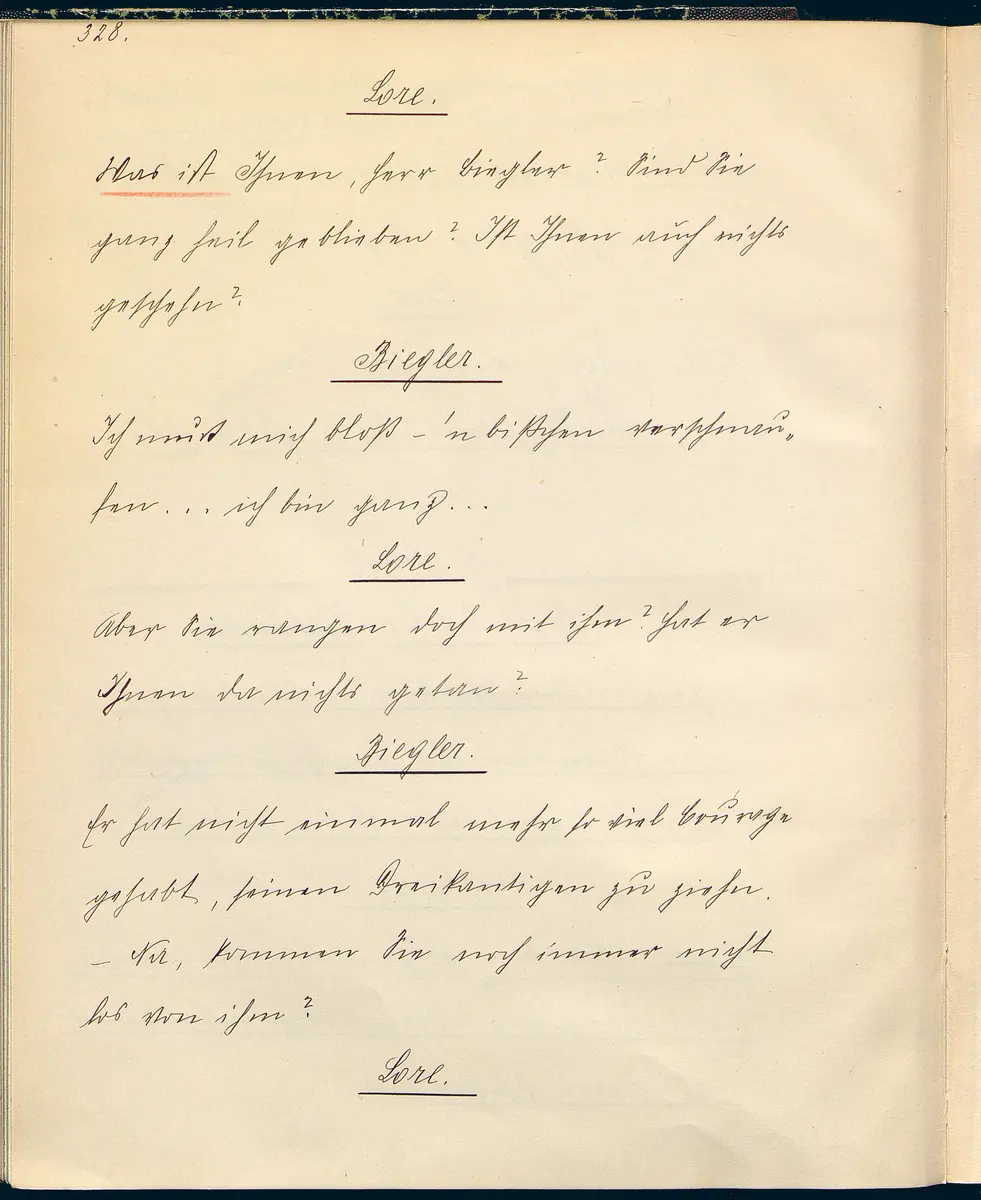 328.
Lore.
Was ist Ihnen, Herr Biegler? Sind Sie
ganz heil geblieben? Ist Ihnen auch nichts
geschehn?
Biegler.
Ich muß mich bloß – 'n bißchen verschnau„
fen... ich bin ganz...
Lore.
Aber Sie rangen doch mit ihm? Hat er
Ihnen da nichts getan?
Biegler.
Er hat nicht einmal mehr so viel Courage
gehabt, seinen Dreikantigen zu ziehn.
– Na, kommen Sie noch immer nicht
los von ihm?
Lore.